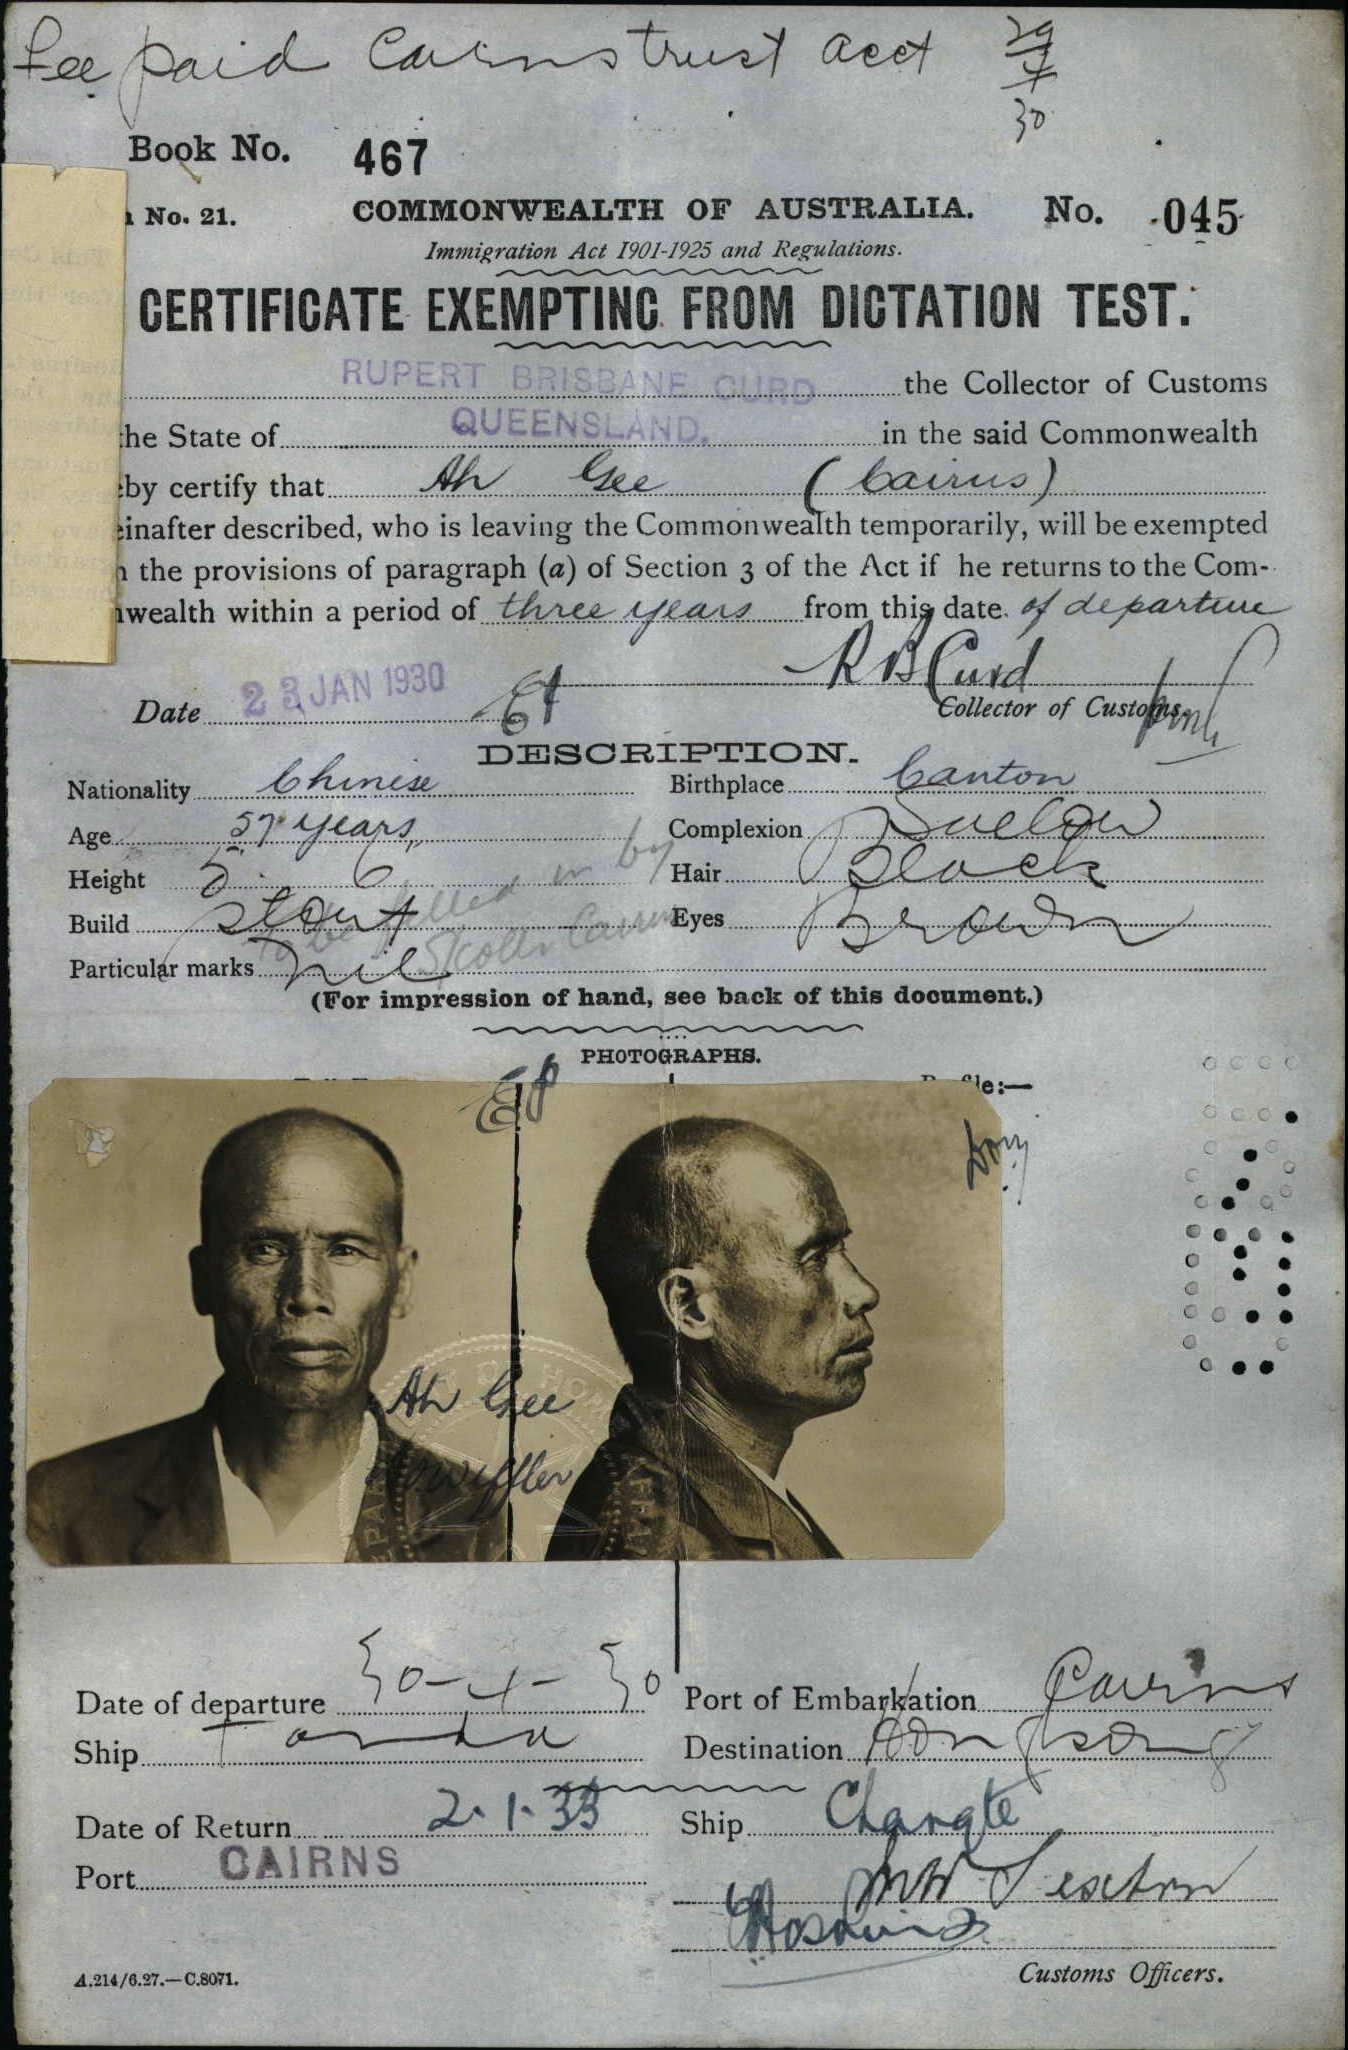 Fee paid Cairns trust acct 29/4/30
Book No. 467
No. 21. COMMONWEALTH OF AUSTRALIA. No. 045
Immigration Act 1901-1925 and Regulations.
CERTIFICATE EXEMPTING FROM DICTATION TEST.
RUPERT BRISBANE CURD the Collector of Customs
he State of QUEENSLAND. in the said Commonwealth
by certify that Ah Gee (Cairns)
einafter described, who is leaving the Commonwealth temporarily, will be exempted
the provisions of paragraph (a) of Section 3 of the Act if he returns to the Com-
wealth within a period of three years from this date. of departure
R B Curd
Date 23 JAN 1930 Collector of Customs.
DESCRIPTION.
Nationality Chinese Birthplace Canton
Age 57 years Complexion Sallow
Height 5' 6" Hair Black
Build Stout Eyes Brown
To be filled in by
Particular marks nil
(For impression of hand, see back of this document.)
PHOTOGRAPHS.
file:—
Ah Gee
Date of departure 30-4-30 Port of Embarkation Cairns
Ship Tanda Destination Hongkong
Date of Return 2.1.33 Ship Changte
Port CAIRNS
Customs Officers.
A.214/6.27.—C.8071.